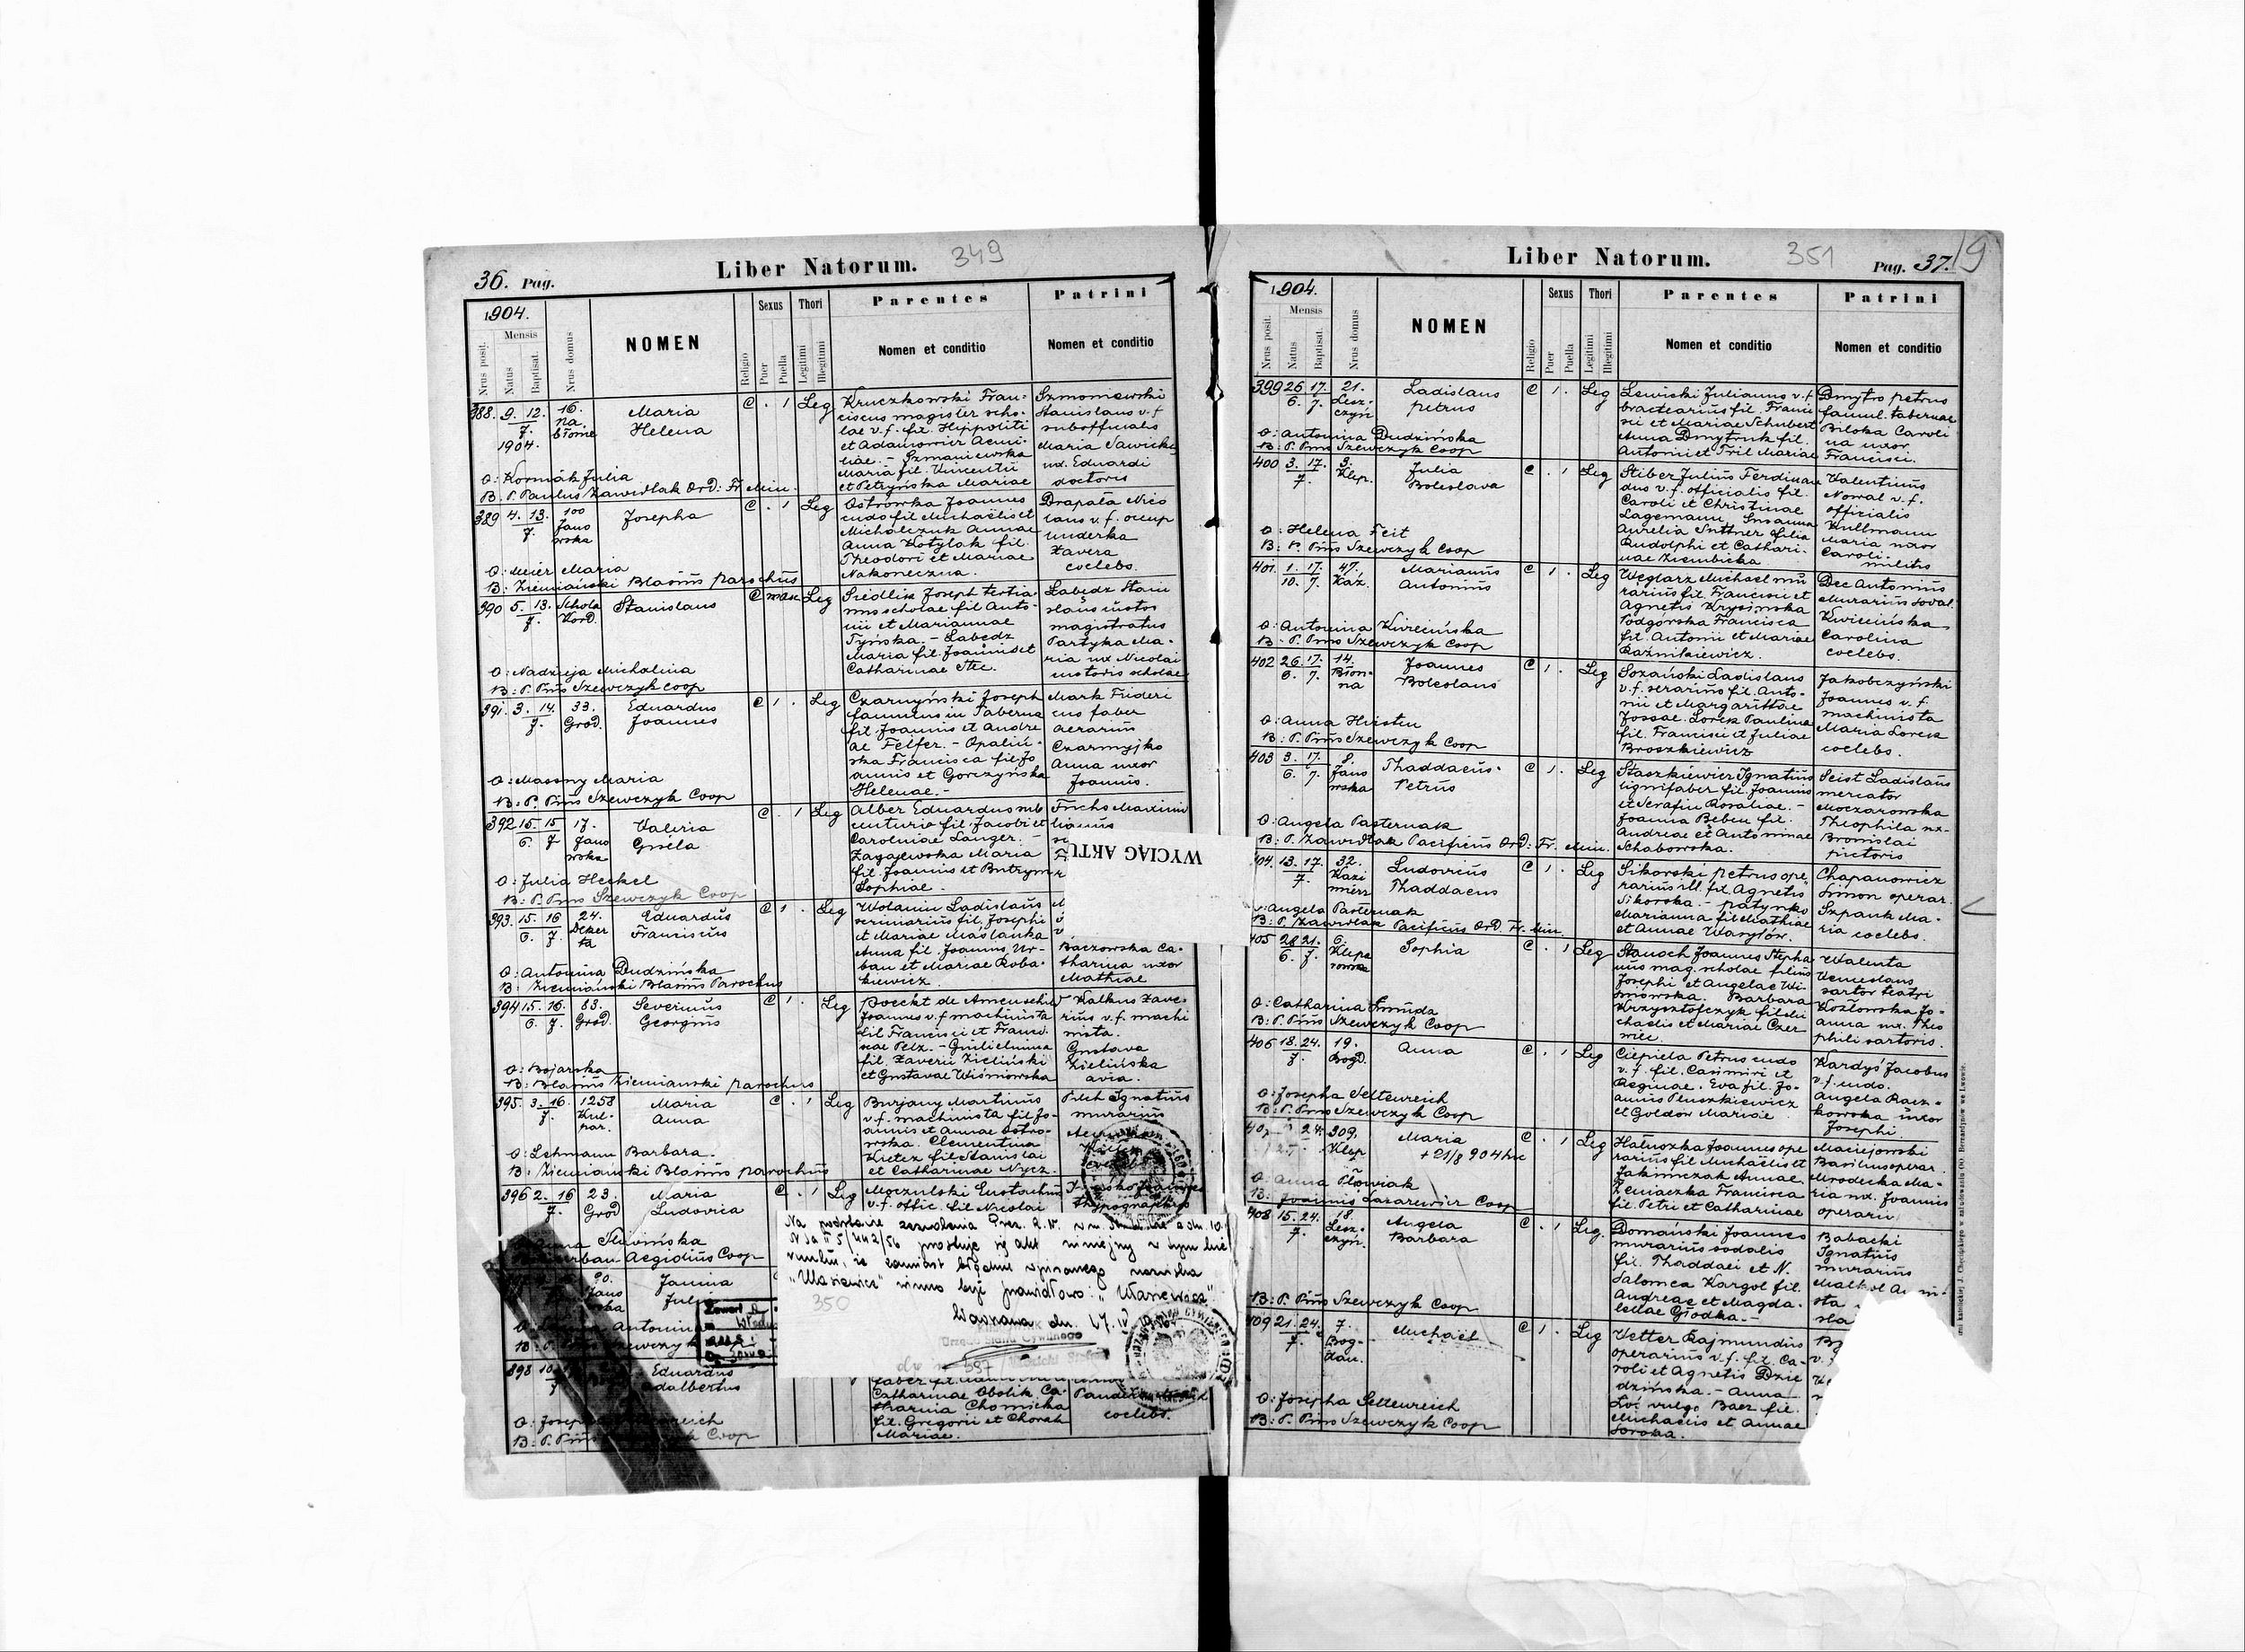 36. Pag.
Liber Natorum.
349
1904.
Mensis
Nrus posit.
Natus
Baptisat.
Nrus domus
NOMEN
Religio
Sexus
Puer
Puella
Thori
Legitimi
Illegitimi
Parentes
Nomen et conditio
Patrini
Nomen et conditio
388. 9. 12. 16.
7.
1904.
Maria
Helena
C . 1 Leg
Kruczkowski Fran-
ciscus magister scho-
lae v. f. fil. Hippoliti
et Adamowicz Aemi-
liae. - Szmoniewska
Maria fil. Vincentii
et Petryńska Mariae
Szmoniewski
Stanislaus v. f
subofficialis
Maria Sawicka
ux. Eduardi
doctoris
O: Korniák Julia
B: P. Paulus Zawidlak Ord: Fr. Min.
389 4. 13. 100
7. Jano
wska
Josepha
C . 1 Leg
Ostrówka Joannes
cudo fil Michaëlis et
Michalczuk Annae
Anna Kotylak fil.
Theodori et Mariae
Nakoneczna.
Drapała Nico
laus v. f. occup
Xavera
coelebs.
O: Meier Maria
B: Ziemiański Blasius parochus
390 5. 13. Schola
7. Kord.
Stanislaus
C masc Leg
Siedlik Joseph tertia-
nus scholae fil Anto-
nii et Mariannae
Tyńska. - Łabędz
Maria fil. Joannis et
Catharinae Stec.
Łabędz Stani
slaus custos
magistratus
Partyka Ma-
ria ux Nicolai
custoris scholae
O: Nadzieja Michalina
B: P. Pius Szewczyk coop
391. 3. 14. 33.
7. Grod.
Eduardus
Joannes
C 1 . Leg
Czarnyński Joseph
famulus in Taberna
fil. Joannis et Andre
ae Felfer. - Opaliń-
ska Francisca fil. Jo
annis et Gorczyńska
Helenae. -
Mark Frideri
cus faber
aerarius
Czarnyjko
Anna uxor
Joannis.
O: Masony Maria
B: P. Pius Szewczyk Coop
392 15. 15 17.
6. 7 Jano
wska
Valeria
Gisela
C . 1 Leg
Alber Eduardus sub
centurio fil. Jacobi et
Carolinae Langer. -
Zagajewska Maria
fil. Joannis et Butryn
Sophiae.
Fuchs Maximi
lianus
WYCIĄG AKTU
O: Julia Heckel
B: P. Pius Szewczyk Coop
393. 15. 16 24.
6. 7. Deker
ta
Eduardus
Franciscus
C 1 . Leg
Wolanin Ladislaus
seminarius fil. Josephi
et Mariae Maślanka
Anna fil. Joannis Ur-
ban et Mariae Roba-
kiewicz.
Baczowska Ca-
tharina uxor
Mathiae
O: Antonina Dudzińska
B: Ziemiański Blasius Parochus
394 15. 16. 83.
6. 7. Grod.
Severinus
Georgius
C 1 . Leg
Joannes v. f machinista
fil Francisci et Franci
scae Pelz. - Guilielmina
fil. Xaverii Zieliński
et Gustavae Wiśniowska
Walkus Xave-
rius v. f. machi
nista.
Gustava
Zielińska
avia.
O: Bojarska
B: Blasius Ziemianski parochus
395. 3. 16. 1258
7. Kul-
par.
Maria
Anna
C . 1 Leg
Burjany Martinus
v. f. machinista fil Jo-
annis et Annae Ostro-
wska. Clementina
Kietez fil Stanislai
et Catharinae Nycz.
Ignatius
murarius
O: Lehmann Barbara.
B: Ziemianski Blasius parochus
396 2. 16 23.
7. Grod
Maria
Ludovica
C . 1 Leg
Moczulski Eustachius
v. f. offic. fil Nicolai
typographus
Sławińska
Aegidius Coop
Na podstawie zezwolenia Prez.
prostuje się akt niniejszy w tym kie
runku, że zamiast błędnie wpisanego nazwiska
winno być prawidłowo:
350
Warszawa dn. 17. IV
Urzędu Stanu Cywilnego
Janina
Antonina
398
Eduardus
Adalbertus
Catharinae Obolik. Ca-
tharina Chomicka
fil. Gregorii et Chorah
Mariae.
coelebs.
Coop
Liber Natorum.
351
Pag. 37.
19
1904.
Mensis
Nrus posit.
Natus
Baptisat.
Nrus domus
NOMEN
Religio
Sexus
Puer
Puella
Thori
Legitimi
Illegitimi
Parentes
Nomen et conditio
Patrini
Nomen et conditio
399 26 17. 21.
6. 7. Lesz-
czyń
Ladislaus
Petrus
C 1. Leg
Lewicki Julianus v. f
bractearius fil. Franci
sci et Mariae Schubert
Anna Dmytruk fil.
Antonii et Tril Mariae
Dmytro petrus
famul. tabernae
Biloka Caroli
na uxor
Francisci.
O: Antonina Dudzińska
B: P. Pius Szewczyk Coop
400 3. 17. 3.
7. Klep.
Julia
Boleslava
C . 1 Leg
Stiber Julius Ferdinan
dus v. f. officialis fil.
Caroli et Christinae
Lagemann. Susanna
Aurelia Suttner filia
Rudolphi et Cathari-
nae Ziembicka
Valentinus
Nowal v. f.
officialis
Kullmann
Maria uxor
Caroli
militis
O: Helena Feit
B: P. Pius Szewczyk Coop
401. 1. 17. 47.
10. 7. Kaz.
Marianus
Antonius
C 1. Leg
Węglarz Michael mu
rarius fil. Francisci et
Agnetis Krysińska
Podgórska Francisca
fil. Antonii et Mariae
Kaźmikiewicz.
Dec Antonius
Murarius sodal.
Kwiecińska
Carolina
coelebs.
O: Antonina Kwiecińska
B: P. Pius Szewczyk Coop
402 26. 17. 14.
6. 7. Błon-
na
Joannes
Boleslaus
C 1. Leg
Sozański Ladislaus
v. f. serarius fil. Anto-
nii et Margarithae
Jossae. Lorek Paulina
fil. Francisci et Juliae
Broszkiewicz
Jakobczyński
Joannes v. f.
machinista
Maria Lorek
coelebs.
O: Anna Hirstin
B: P. Pius Szewczyk Coop
403 3. 17.
6. 7. Jano
wska
Thaddaeus
Petrus
C 1. Leg
Staszkiewicz Ignatius
lignifaber fil. Joannis
et Serafin Rosaliae. -
Joanna Beben fil.
Andreae et Antoninae
Schabowska.
Seist Ladislaus
mercator
Moczarowska
Theophila ux-
Bronislai
pictoris
O: Angela Pasternak
B: P. Zawidlak Pacificus Ord: Fr. Min.
404. 13. 17. 32.
7. Kazi
mierz
Ludovicus
Thaddaeus
C 1. Leg
Sikorski petrus ope
rarius ill. fil. Agnetis
Sikorska. - patynko
Marianna fil Mathiae
et Annae Warylów.
Chapanowicz
Simon operar.
Szpank Ma-
ria coelebs.
Angela Pasternak
B: P. Zawidlak Pacificus Ord. Fr. Min
405 28 21. 6.
6. 7. Klepa
rowska
Sophia
C . 1 Leg
Stanoch Joannes Stepha
nus mag. scholae filius
Josephi et Angelae Wi-
śniowska. Barbara
Krzysztofczyk fil Mi
chaelis et Mariae Czer
wiec.
Walenta
Venceslaus
sartor teatri
Kozłowska Jo-
anna ux. Theo
phili sartoris.
O: Catharina Smuda
B: P. Pius Szewczyk Coop
406 18. 24. 19.
7. Bogd.
Anna
C . 1 Leg
Ciepiela Petrus cudo
v. f. fil. Casimiri et
Reginae. Eva fil. Jo-
annis Pluszkiewicz
et Goldór Mariae.
Kardyś Jacobus
v. f. cudo.
Angela Racz-
kowska uxor
Josephi.
O: Josepha Seltenreich
B: P. Pius Szewczyk Coop
407 24. 309.
7. Klep
Maria
+ 21/8 904
C . 1 Leg
Hałuszka Joannes ope
rarius fil Michaëlis et
Jakimczak Annae
Zemiaczka Francisca
fil. Petri et Catharinae
Maciejowski
Basilius operar.
Mrodecka Ma-
ria ux. Joannis
operarii
O: Anna Płowiak
B: Joannes Lazarewicz Coop
408 15. 24. 18.
7. Lesz-
czyń.
Angela
Barbara
C . 1 Leg.
Domański Joannes
murarius sodalis
fil. Thaddaei et N.
Salomea Kargol fil.
Andreae et Magda-
lenae Głodka. -
Babacki
Ignatius
murarius
B: P. Pius Szewczyk Coop
409 21. 24. 7.
7. Bog-
dan.
Michaël
C 1. Leg
Vetter Rajmundus
operarius v. f. fil. Ca-
roli et Agnetis Dzie
dzińska. - Anna
Loć vulgo Baer fil.
Michaelis et Annae
Soroka.
O: Josepha Seltenreich
B: P. Pius Szewczyk Coop